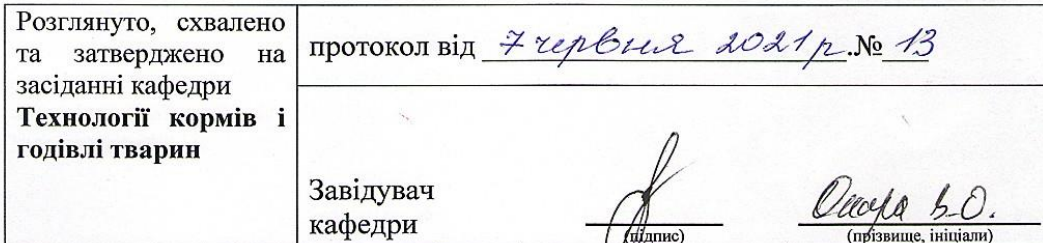 Розглянуто, схвалено
та затверджено на
засіданні кафедри
Технології кормів і
годівлі тварин
протокол від 7 червня 2021 р. № 13
Завідувач
кафедри
(підпис)
В.О.
(прізвище, ініціали)